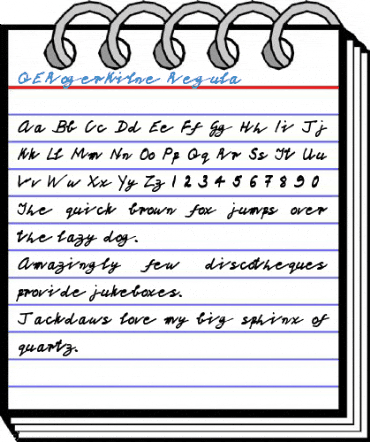 QERogerMilne Regula
Aa Bb Cc Dd Ee Ff Gg Hh Ii Jj
Kk Ll Mm Nn Oo Pp Qq Rr Ss Tt Uu
Vv Ww Xx Yy Zz 1 2 3 4 5 6 7 8 9 0
The quick brown fox jumps over
the lazy dog.
Amazingly few discotheques
provide jukeboxes.
Jackdaws love my big sphinx of
quartz.